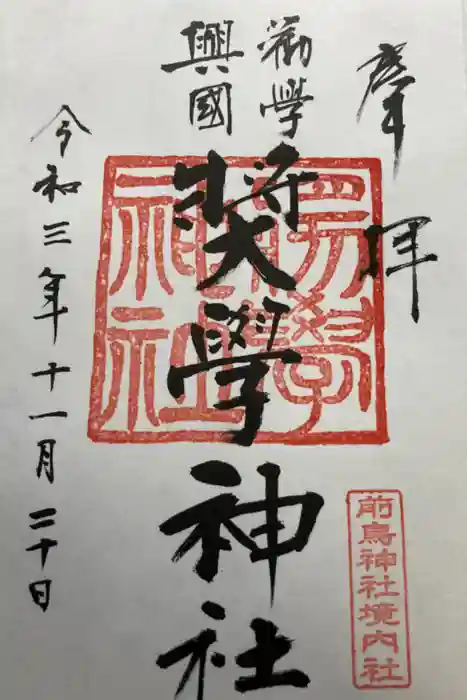 奉拝
勧學
興國
奬學神社
令和三年十一月二十日
前鳥神社境内社